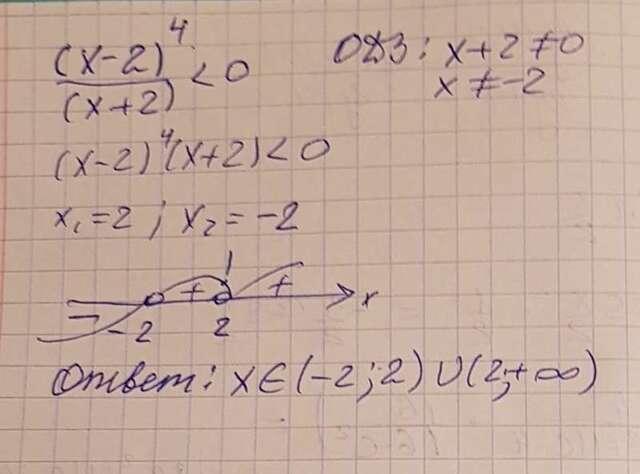 (x-2)⁴/(x+2) < 0 ОДЗ: x+2≠0
x≠-2
(x-2)⁴(x+2)<0
x₁=2; x₂=-2
- + + x
-2 2
Ответ: x∈(-2;2)∪(2;+∞)